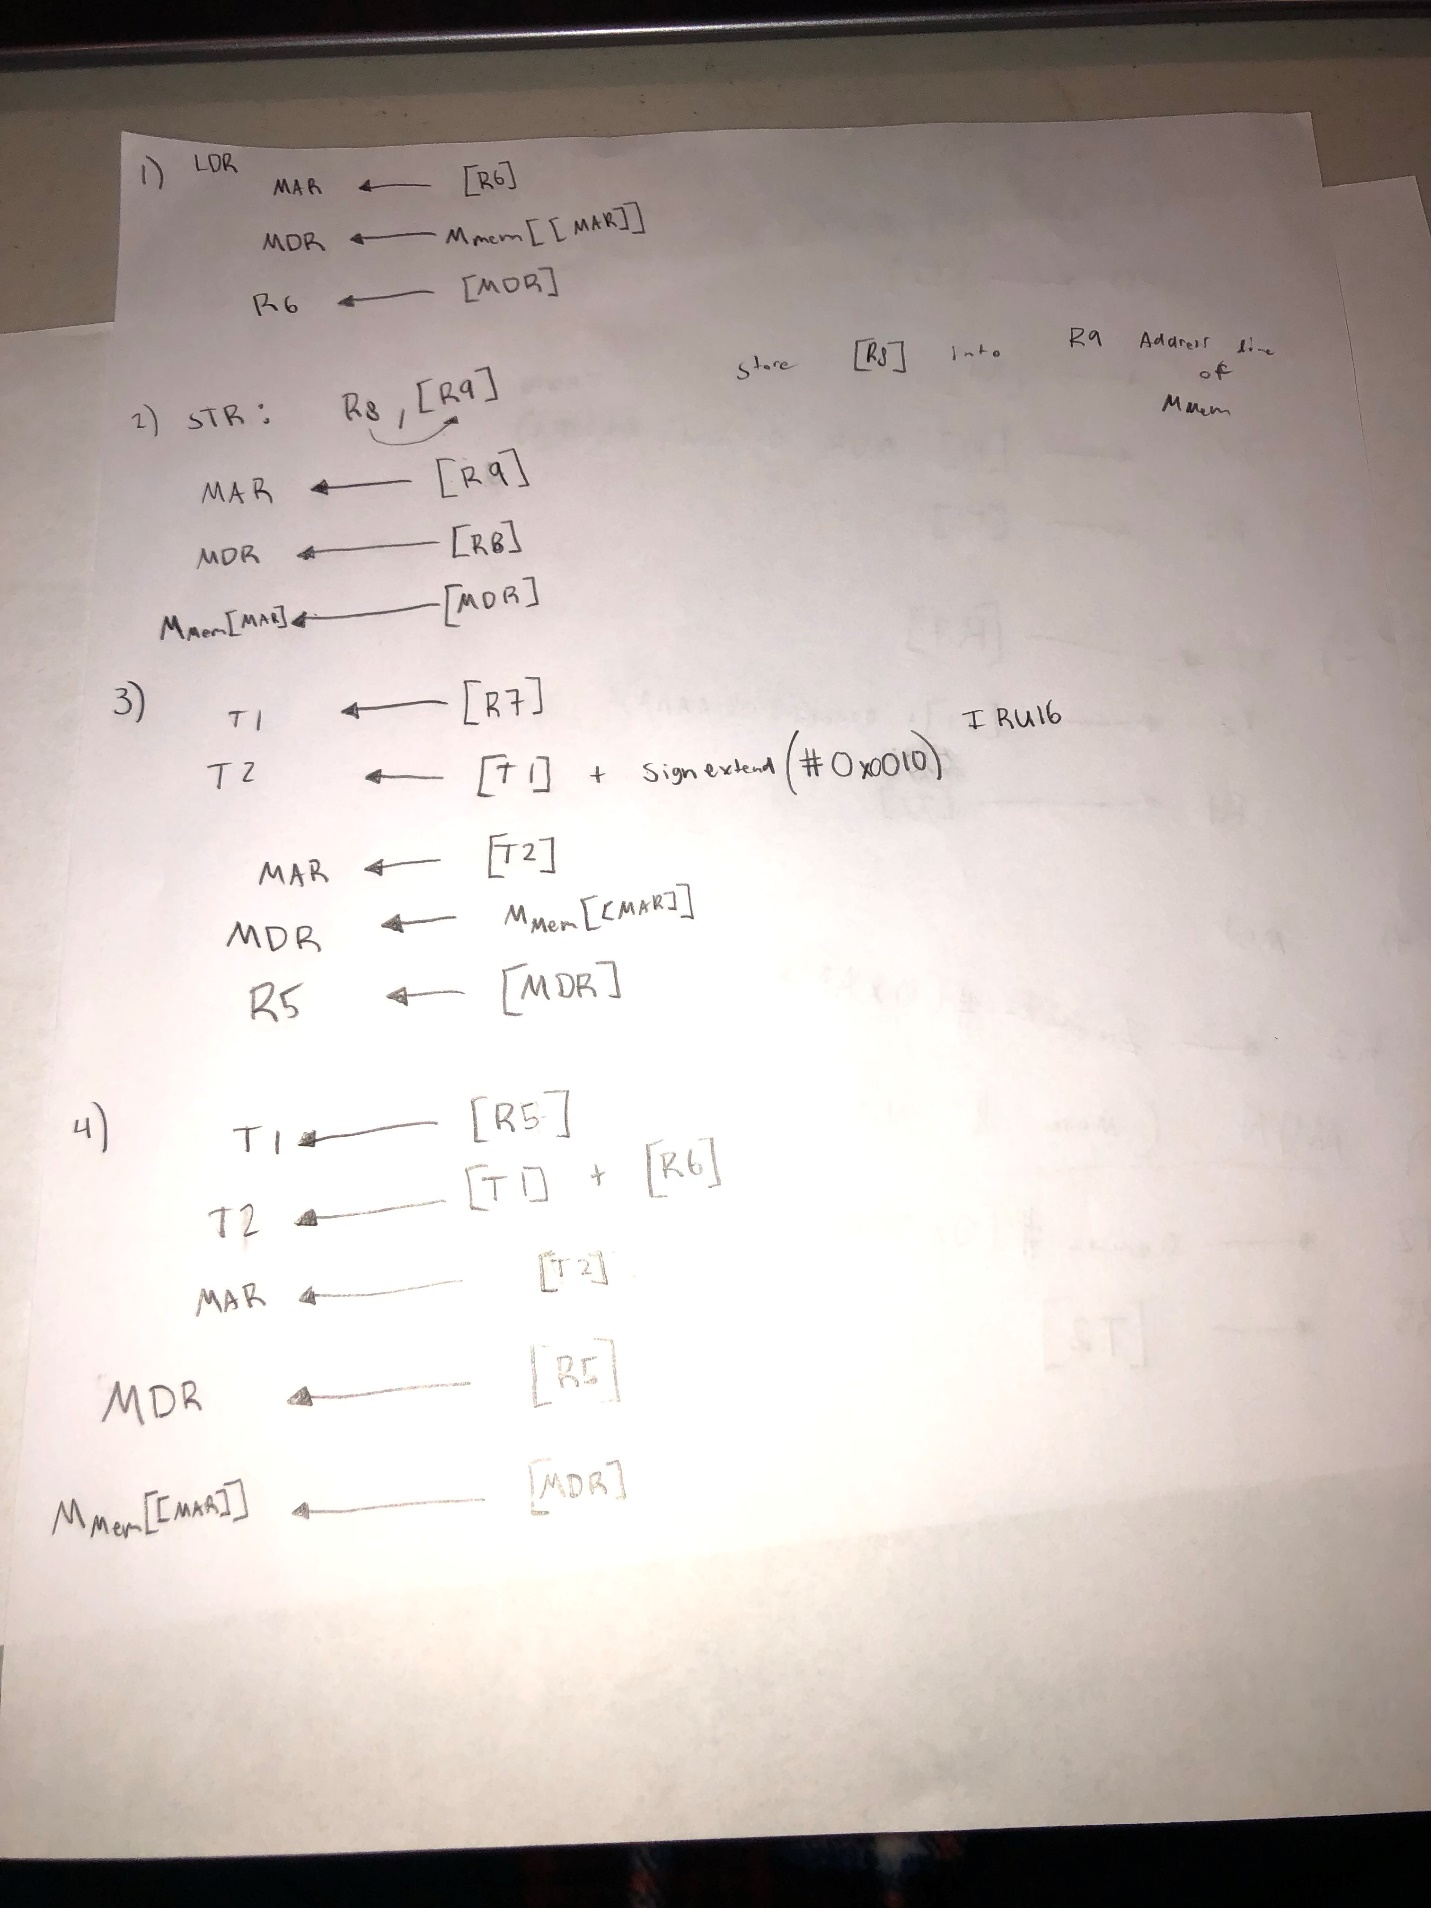 1) LDR
MAR ← [R6]
MDR ← Mmem[[MAR]]
R6 ← [MDR]
store [R8] into R9 Address line
of
Mmem
2) STR: R8, [R9]
MAR ← [R9]
MDR ← [R8]
MMem[MAR] ← [MDR]
3) T1 ← [R7]
IRU16
T2 ← [T1] + Sign extend (#0x0010)
MAR ← [T2]
MDR ← MMem[[MAR]]
R5 ← [MDR]
4) T1 ← [R5]
T2 ← [T1] + [R6]
MAR ← [T2]
MDR ← [R5]
MMem[[MAR]] ← [MDR]